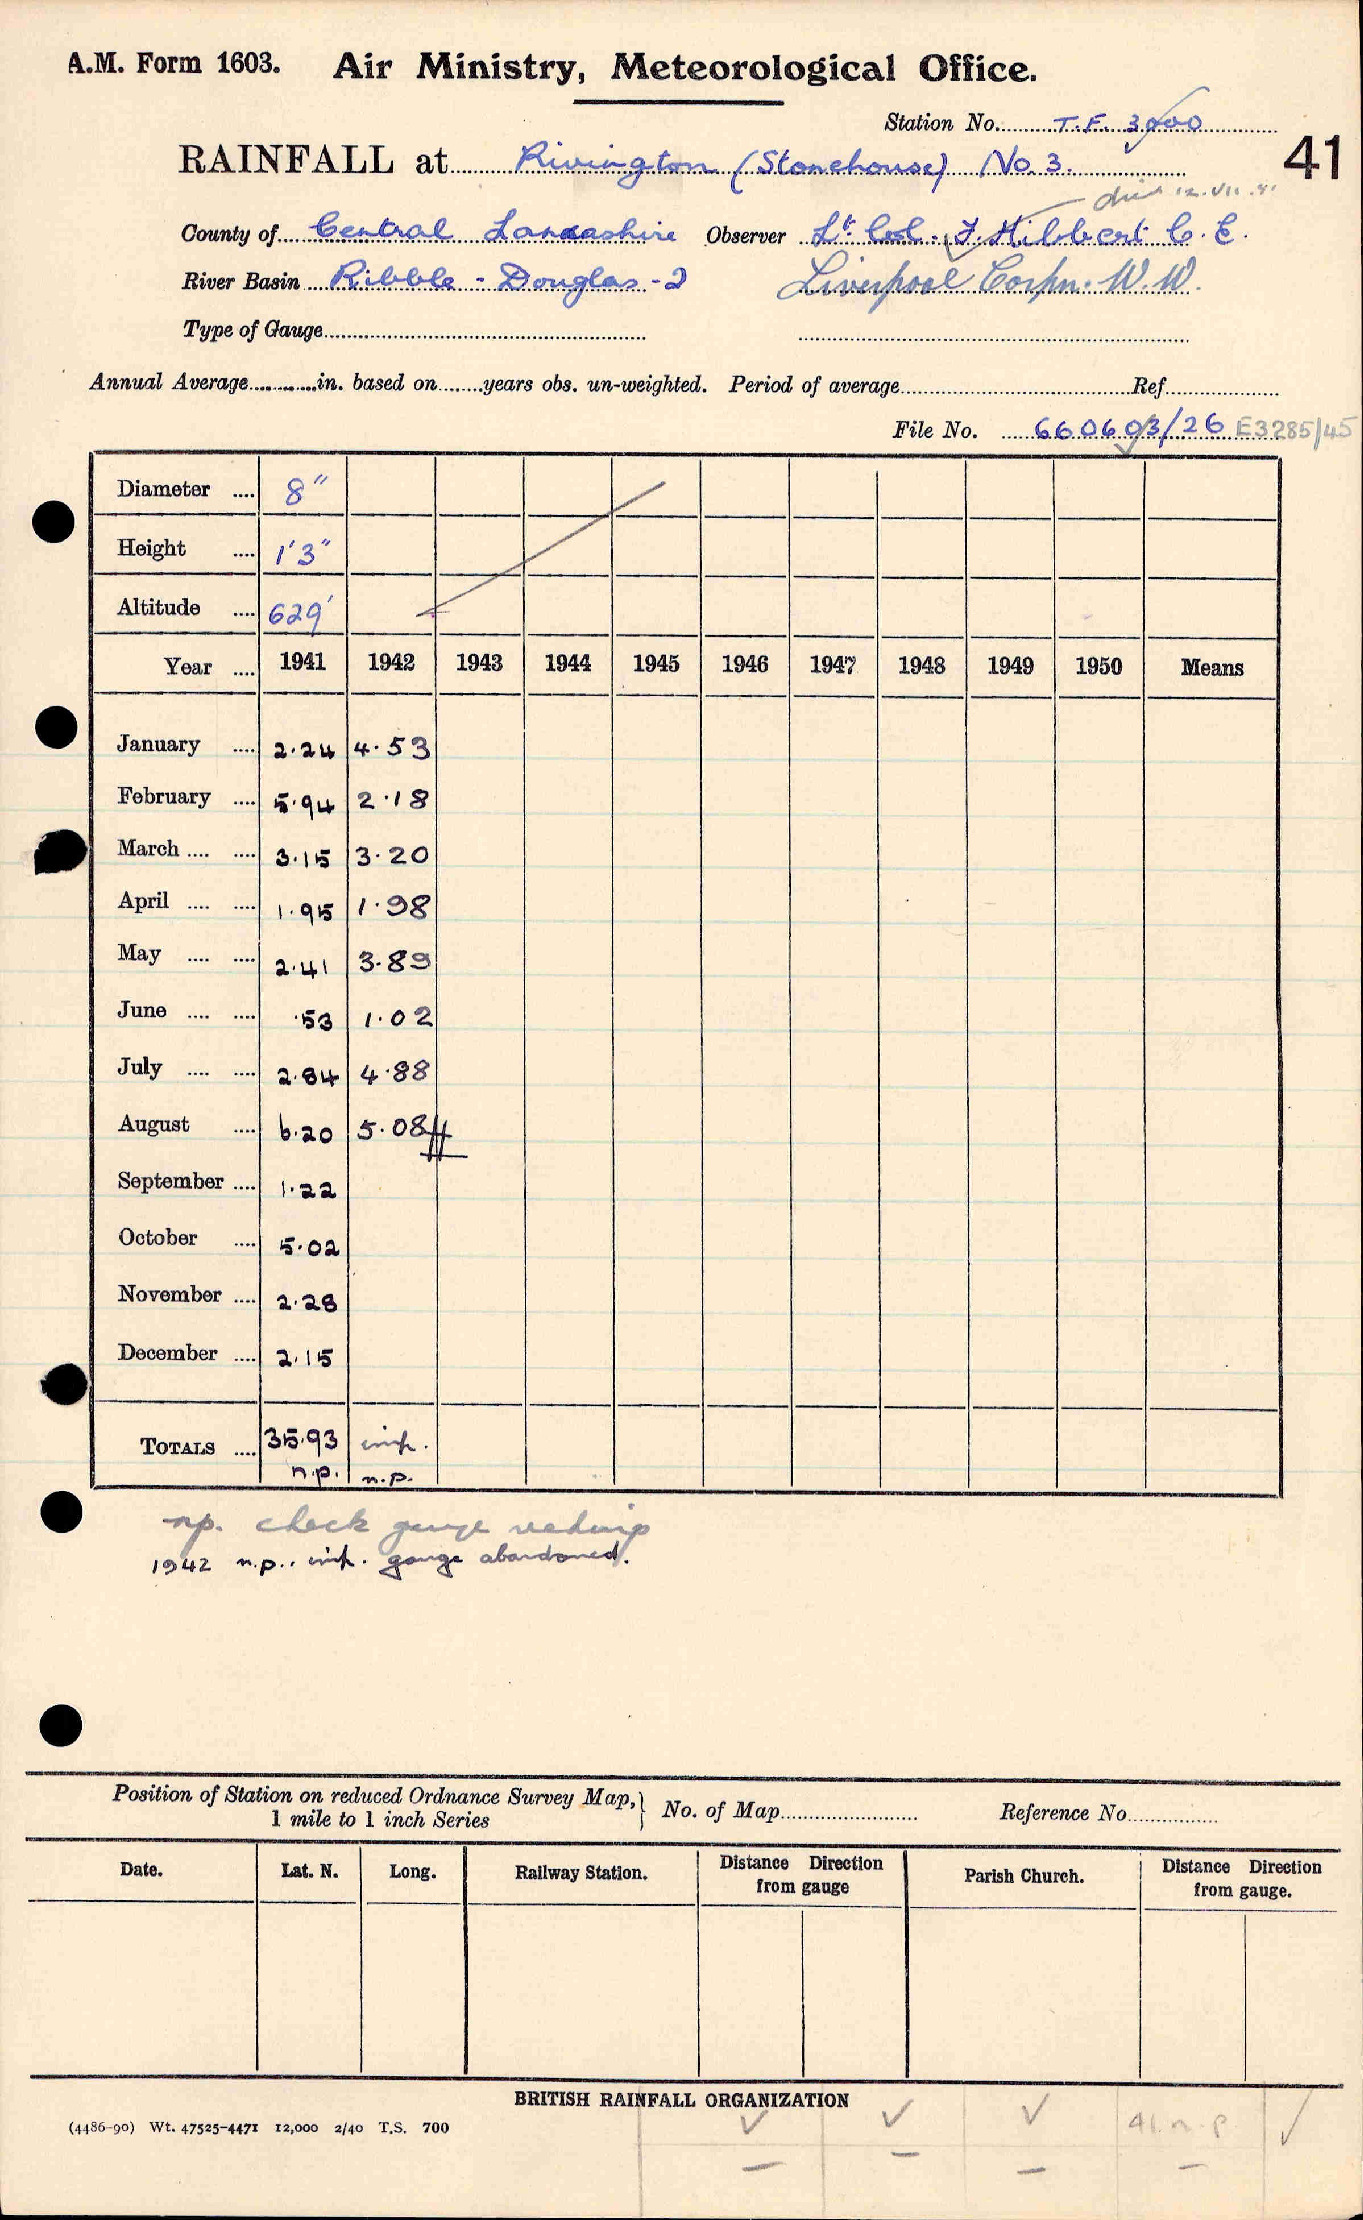 A.M. Form 1603. Air Ministry, Meteorological Office.
Station No. T.F. 3900
RAINFALL at Rivington (Stonehouse) No. 3.
41
died 12.VII.41
County of Central Lancashire Observer Lt Col. F. Hibbert C.E.
River Basin Ribble - Douglas - 2 Liverpool Corpn. W.W.
Type of Gauge
Annual Average in. based on years obs. un-weighted. Period of average Ref.
File No. 660603/26 E3285/45
Diameter 8"
Height 1'3"
Altitude 629'
Year 1941 1942 1943 1944 1945 1946 1947 1948 1949 1950 Means
January 2.24 4.53
February 5.94 2.18
March 3.15 3.20
April 1.95 1.98
May 2.41 3.89
June .53 1.02
July 2.84 4.88
August 6.20 5.08
September 1.22
October 5.02
November 2.28
December 2.15
TOTALS 35.93 imp.
n.p. n.p.
np. check gauge readings
1942 n.p.. imp. gauge abandoned.
Position of Station on reduced Ordnance Survey Map, No. of Map Reference No.
1 mile to 1 inch Series
Date. Lat. N. Long. Railway Station. Distance Direction from gauge Parish Church. Distance Direction from gauge.
BRITISH RAINFALL ORGANIZATION
(4486-90) Wt. 47525-4471 12,000 2/40 T.S. 700
41. n.p.